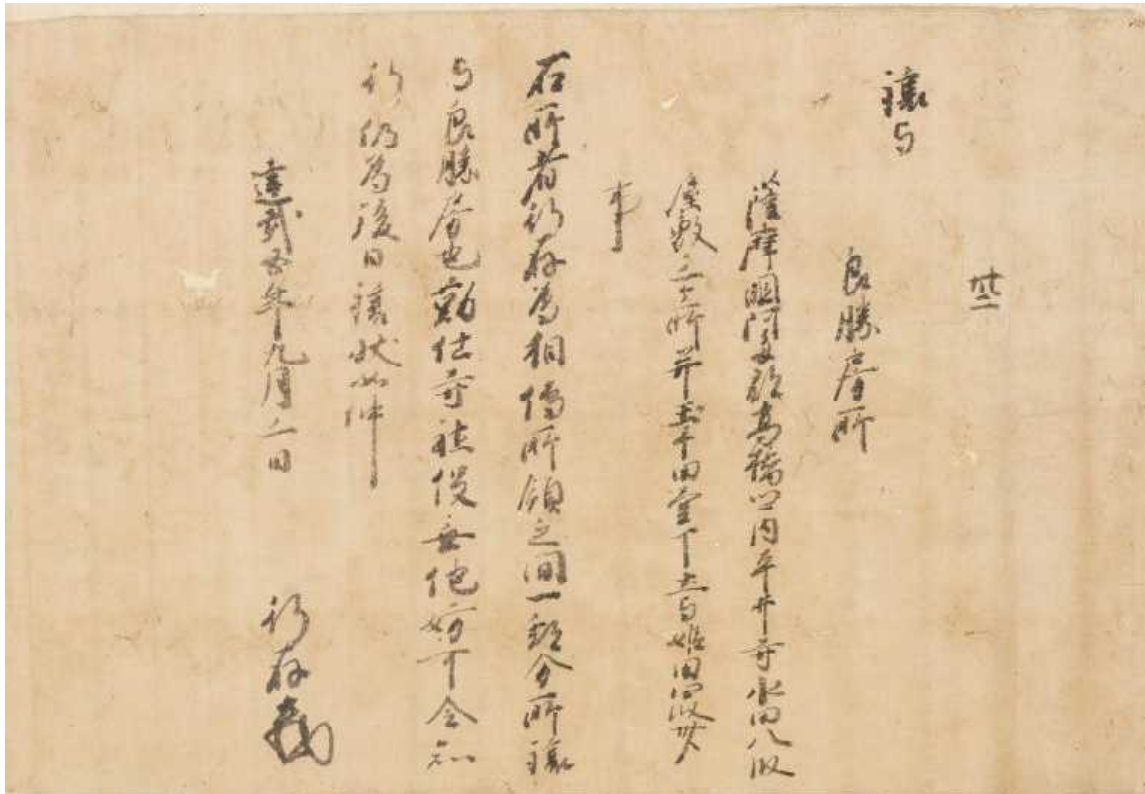 卅二
譲与
良勝房所
薩摩国阿多郡高橋内平井寺水田八段
屋敷三ヶ所并
事
右所者行存為相伝所領之間一郡分所譲
与良勝房也勤仕寺社役無他妨可令知
行仍為後日譲状如件
建武五年九月二日
行存